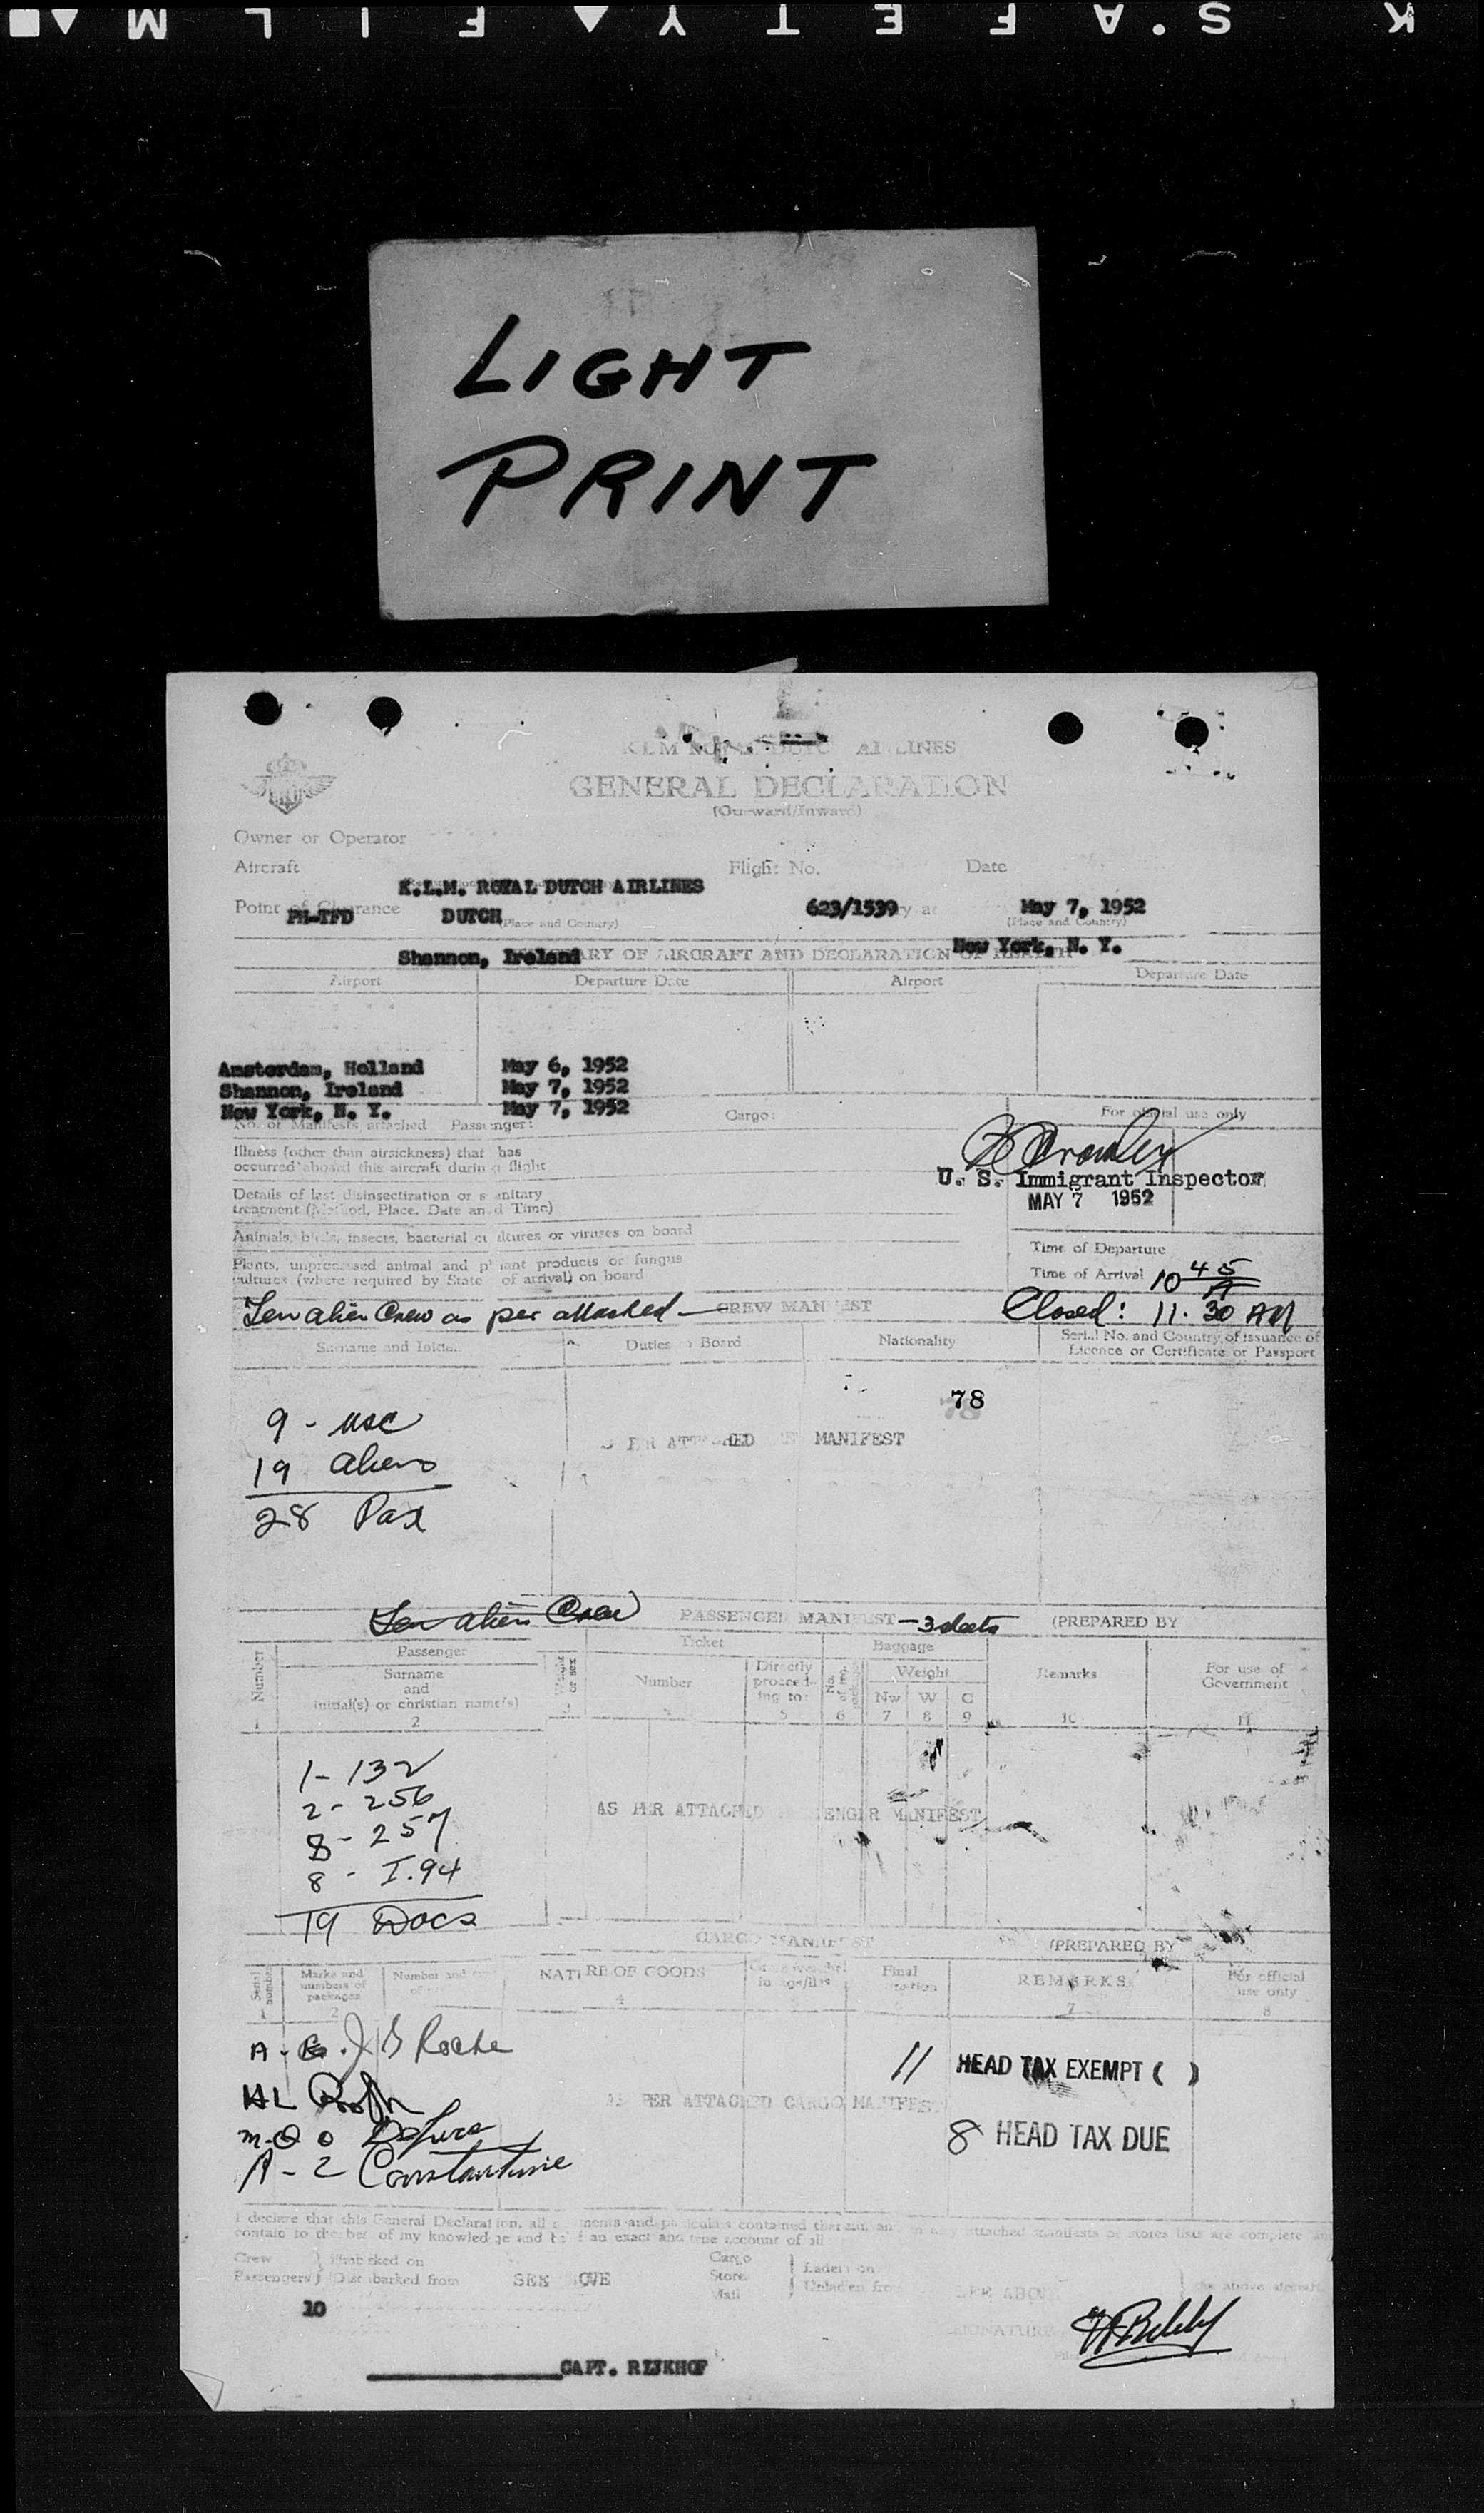 K S·A F E T Y ▲ F I L M
LIGHT
PRINT
K.L.M. ROYAL DUTCH AIRLINES
GENERAL DECLARATION
(Outward/Inward)
Owner or Operator
Aircraft Flight No. Date
K.L.M. ROYAL DUTCH AIRLINES
Point of Clearance
PH-TFD DUTCH (Place and Country) 623/1539 May 7, 1952 (Place and Country)
Shannon, Ireland New York, N. Y.
OF AIRCRAFT AND DECLARATION OF HEALTH
Airport Departure Date Airport Departure Date
Amsterdam, Holland May 6, 1952
Shannon, Ireland May 7, 1952
New York, N. Y. May 7, 1952
No. of Manifests attached Passenger: Cargo: For official use only
Illness (other than airsickness) that has
occurred aboard this aircraft during flight
U. S. Immigrant Inspector
MAY 7 1952
Details of last disinsectization or sanitary
treatment (Method, Place, Date and Time)
Animals, birds, insects, bacterial cultures or viruses on board
Time of Departure
Plants, unprocessed animal and plant products or fungus
cultures (where required by State of arrival) on board
Time of Arrival 10 45 A
Ten alien Crew as per attached — CREW MANIFEST Closed: 11.30 AM
Surname and Initial Duties on Board Nationality Serial No. and Country of issuance of
Licence or Certificate or Passport
78
9 - USC
AS PER ATTACHED MANIFEST
19 aliens
28 Pax
Ten alien Crew PASSENGER MANIFEST — 3 sheets (PREPARED BY
Number Passenger Ticket Baggage Remarks For use of
Government
Surname
and
initial(s) or christian name(s)
Weight or sex Number Directly
proceed-
ing to: Weight
Nw W C
1 2 3 4 5 6 7 8 9 10 11
1 - 132
2 - 256
AS PER ATTACHED PASSENGER MANIFEST
8 - 257
8 - I.94
19 Docs
CARGO MANIFEST (PREPARED BY
Serial number Marks and
numbers of
packages Number and NATURE OF GOODS Final REMARKS For official
use only
2 4 7 8
Roche
11 HEAD TAX EXEMPT ( )
AS PER ATTACHED CARGO MANIFEST
8 HEAD TAX DUE
A - 2 Constantine
I declare that this General Declaration, all and particulars contained therein, attached manifests or stores lists are complete
contain to the best of my knowledge and belief an exact and true account of all
Crew Embarked on Cargo Laden on
Passengers Disembarked from SEE ABOVE Stores Unladen from SEE ABOVE the above aircraft
Mail
10
SIGNATURE
CAPT. RIJKHOF